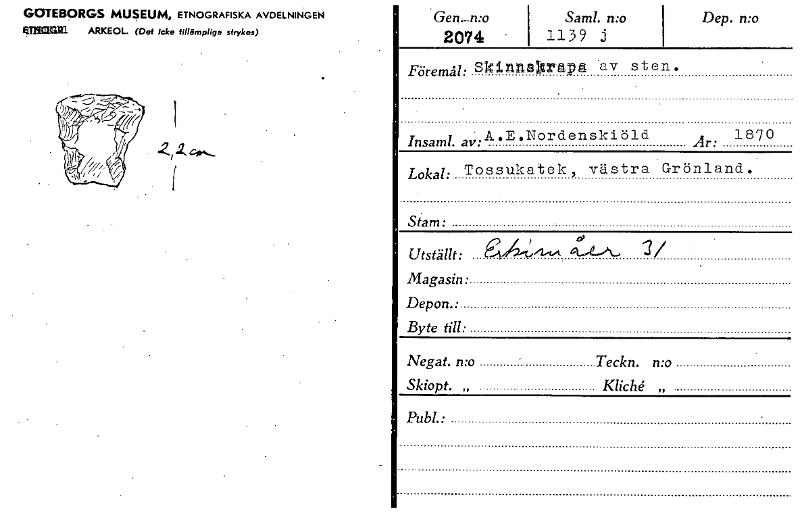 GÖTEBORGS MUSEUM, ETNOGRAFISKA AVDELNINGEN
ETNOGR. ARKEOL. (Det icke tillämpliga strykes)
2,2 cm
Gen. n:o Saml. n:o Dep. n:o
2074 1139 j
Föremål: Skinnskrapa av sten.
Insaml. av: A.E.Nordenskiöld År: 1870
Lokal: Tossukatek, västra Grönland.
Stam:
Utställt: Eskimåer 31
Magasin:
Depon.:
Byte till:
Negat. n:o Teckn. n:o
Skiopt. „ Kliché „
Publ.: